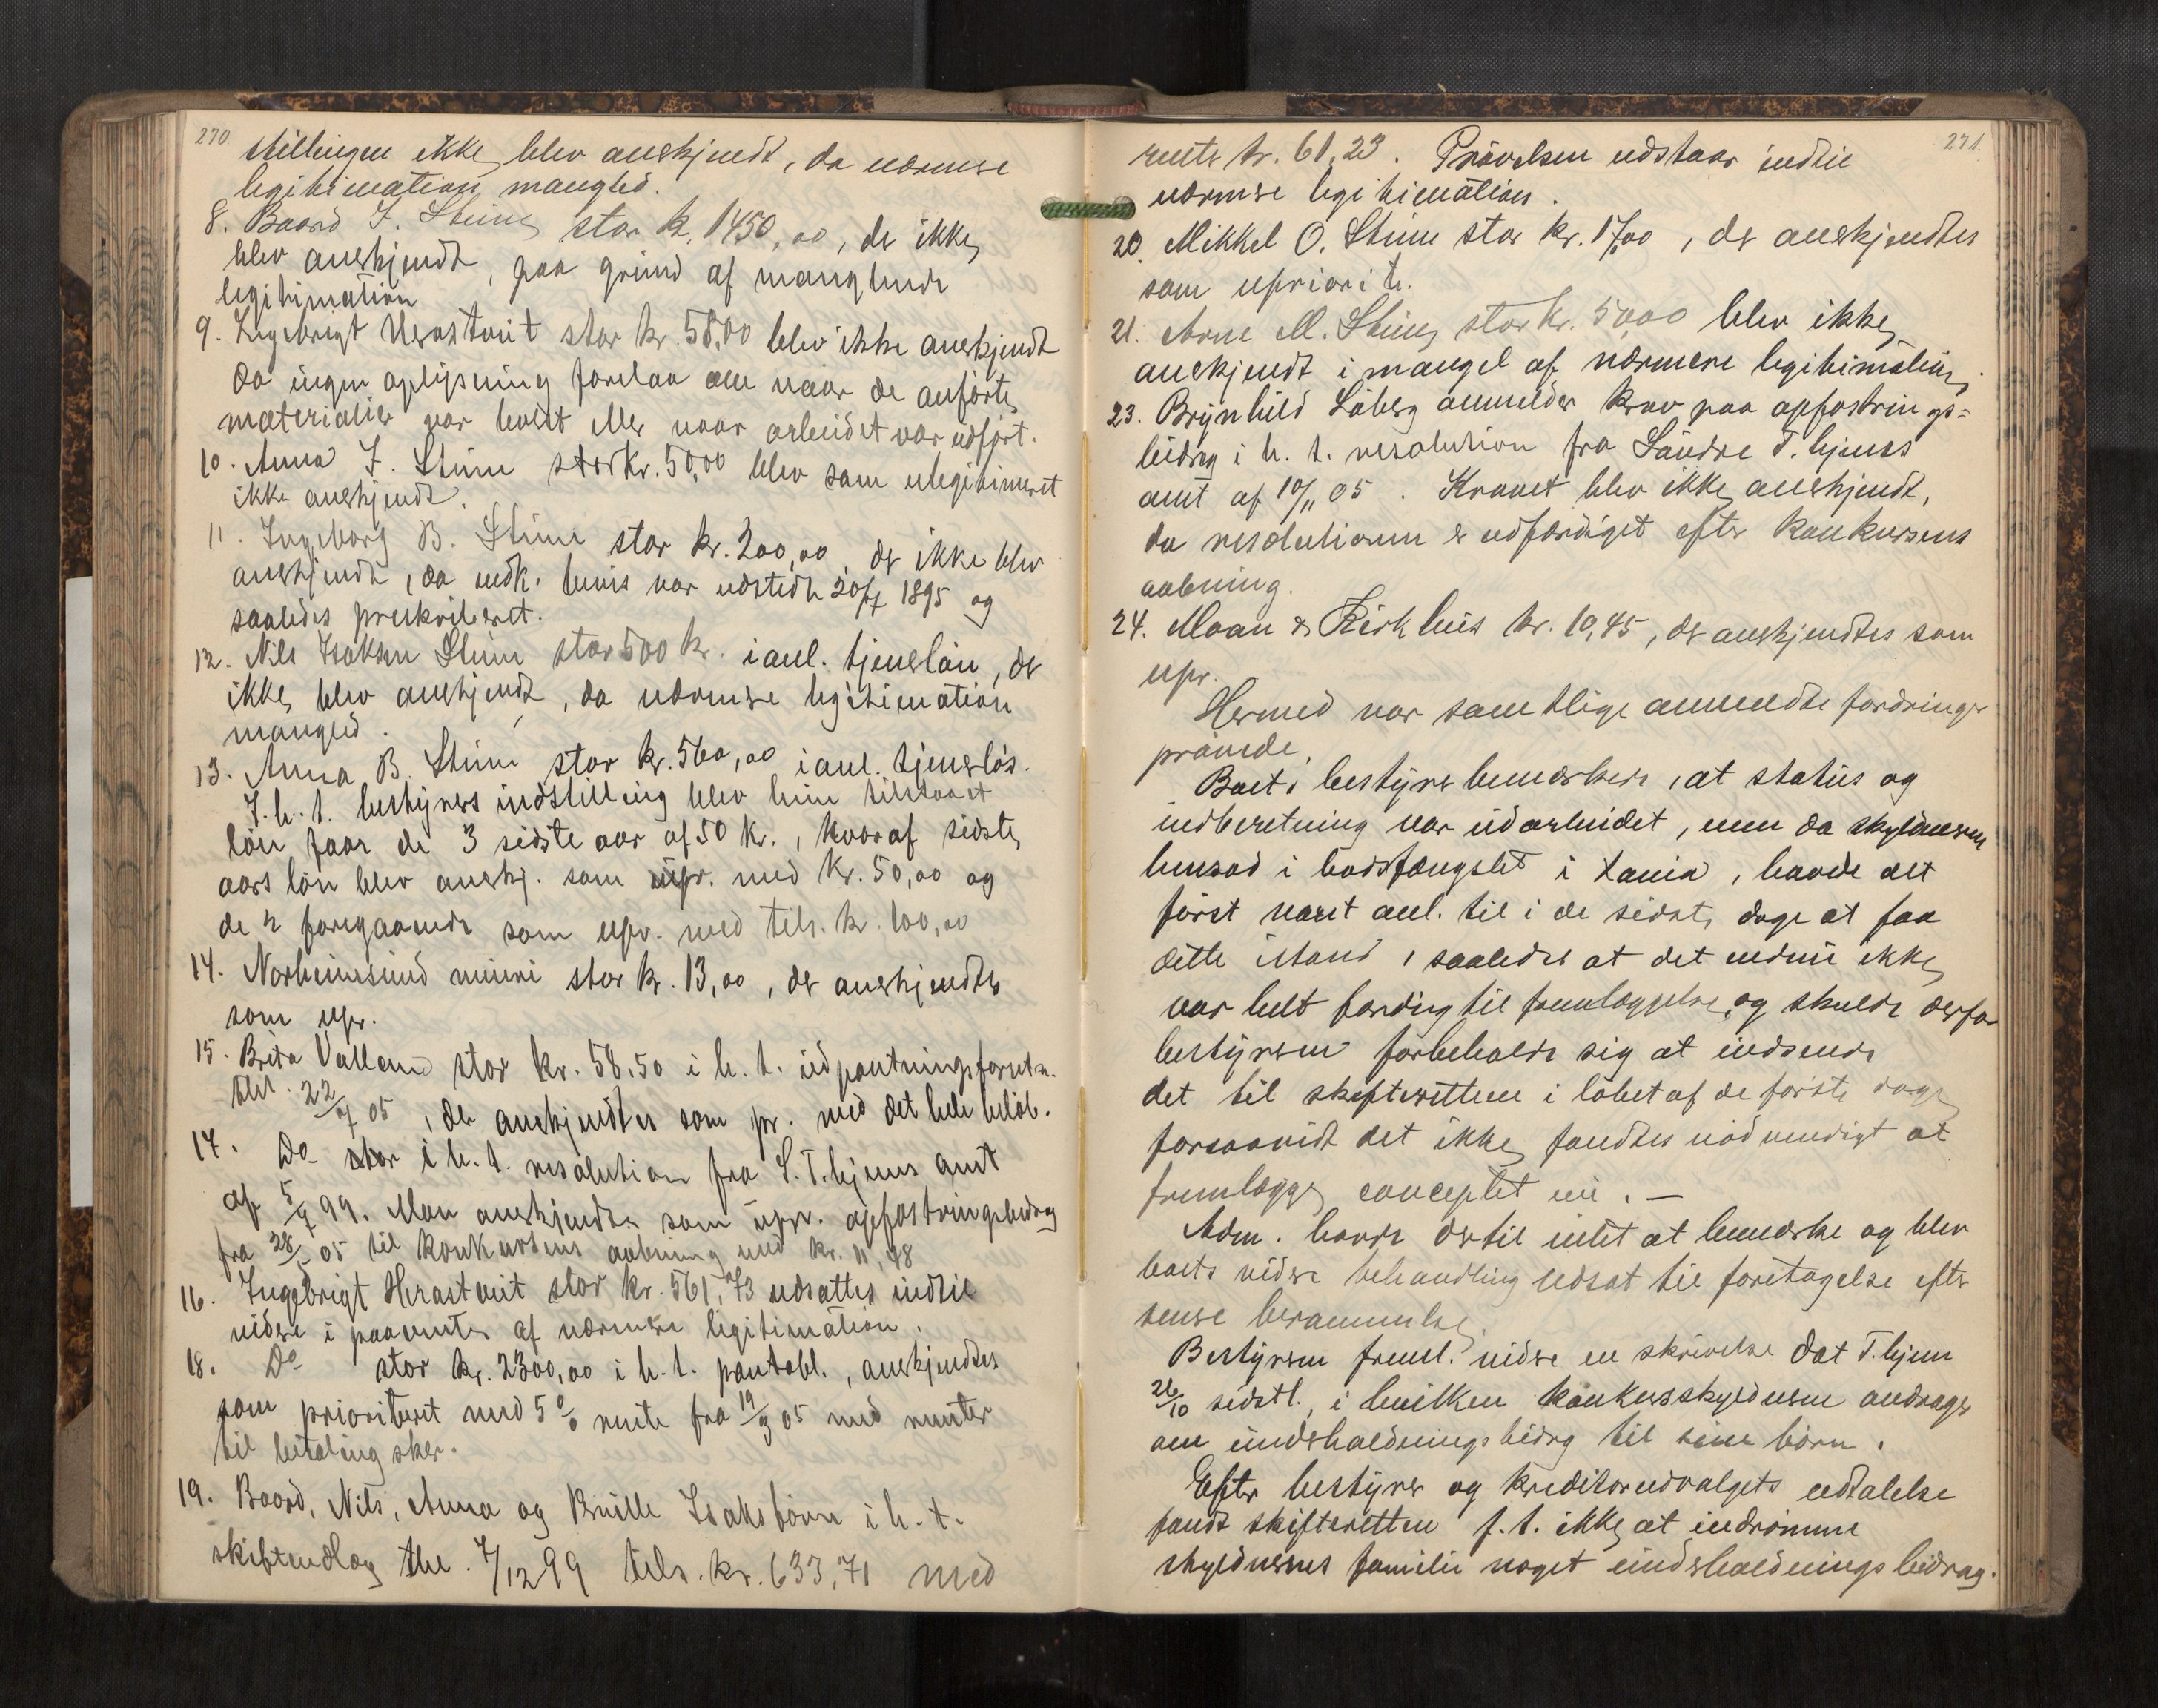 270
stillingen ikke blev anerkjendt, da nærmere
legitimation mangled.
8. Baard I. Steine stor kr. 1450,00, der ikke
blev anerkjendt, paa grund af manglende
legitimation
9. Ingebrigt Herastveit stor kr. 58,00 blev ikke anerkjendt
da ingen oplysning forelaa om naar de anførte
materialier var levert eller naar arbeidet var udført.
10. Anna I. Steine stor kr. 50,00 blev som ulegitimeret
ikke anerkjendt.
11. Ingeborg B. Steine stor kr. 200,00, der ikke blev
anerkjendt, da vedk. bevis var udstedt 20/7 1895 og
saaledes preskriberet.
12. Nils Isaksen Steine stor 500 kr. i anl. tjenerløn, der
ikke blev anerkjendt, da nærmere legitimation
mangled.
13. Anna B. Steine stor kr. 560,00 i anl. tjenerløn.
I. h. t. bestyrers indstilling blev hun tilstaaet
løn for de 3 sidste aar af 50 kr., hvoraf sidste
aars løn blev anerkj. som pr. med kr. 50,00 og
de 2 foregaaende som upr. med tils. kr. 100,00
14. Norheimsund meieri stor kr. 13,00, der anerkjendtes
som upr.
15. Brita Valland stor kr. 58,50 i h. t. udpantningsforretn.
dat. 22/7 05, der anerkjendtes som pr. med det hele beløb.
17. Do stor i h. t. resolution fra S. B.hjems amt
af 5/7 99. Man anerkjendte som upr. opfostringsbidrag
fra 28/5 05 til konkursens aabning med kr. 11,48
16. Ingebrigt Herastveit stor kr. 561,73 udsattes indtil
videre i paavente af nærmere legitimation.
18. Do stor kr. 2300,00 i h. t. pantobl., anerkjendtes
som prioriteret med 5 % rente fra 19/9 05 med renter
til betaling sker.
19. Baard, Nils, Anna og Brutte Isaksbørn i h. t.
skifteudlæg tlæ. 7/12 99 tils. kr. 633,71 med
271.
rente kr. 61,23. Prøvelsen udstaar indtil
nærmere legitimation.
20. Mikkel O. Steine stor kr. 17,00, der anerkjendtes
som uprioritr.
21. Arne M. Steine stor kr. 50,00 blev ikke
anerkjendt i mangel af nærmere legitimation.
23. Brynhild Løberg anmelder krav paa opfostrings=
bidrag i h. t. resolution fra Søndre B.hjems
amt af 10/11 05. Kravet blev ikke anerkjendt,
da resolutionen er udfærdiget efter konkursens
aabning.
24. Moan & Kirkhus kr. 10,45, der anerkjendtes som
upr.
Hermed var samtlige anmeldte fordringer
prøvede.
Boets bestyrer bemærkede, at status og
indberetning var udarbeidet, men da skyldneren
hensad i bodsfængslet i Xania, havde det
først været anl. til i de sidste dage at faa
dette istand, saaledes at det endnu ikke
var helt færdig til fremlæggelse, og skulde derfor
bestyreren forbeholde sig at indsende
det til skifteretten i løbet af de første dage
forsaavidt det ikke fandtes nødvendigt at
fremlægge conceptet nu. —
Adm. havde dertil intet at bemærke og blev
boets videre behandling udsat til foretagelse efter
senere berammelse.
Bestyreren freml. videre en skrivelse dat B.hjem
26/10 sidstl., i hvilken konkursskyldneren andrager
om underholdningsbidrag til sine børn.
Efter bestyrer og kreditorudvalgets udtalelse
fandt skifteretten f. t. ikke at indrømme
skyldnerens familie noget underholdningsbidrag.